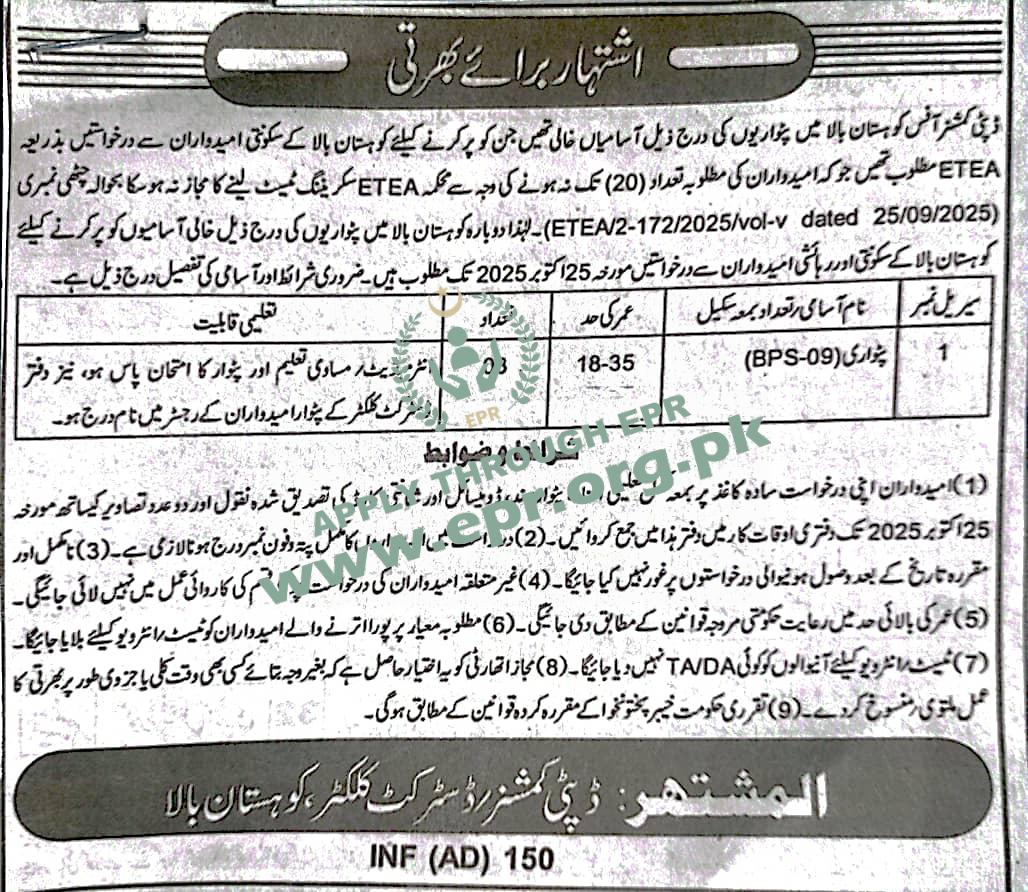 اشتہار برائے بھرتی
ڈپٹی کمشنر آفس کوہستان بالا میں پٹواریوں کی درج ذیل آسامیاں خالی تھیں جن کو پر کرنے کیلئے کوہستان بالا کے سکونتی امیدواران سے درخواستیں بذریعہ
ETEA مطلوب تھیں جو کہ امیدواران کی مطلوبہ تعداد (20) تک نہ ہونے کی وجہ سے محکمہ ETEA سکریننگ ٹیسٹ لینے کا مجاز نہ ہو سکا بحوالہ چٹھی نمبری
(ETEA/2-172/2025/vol-v dated 25/09/2025)۔ لہٰذا دوبارہ کوہستان بالا میں پٹواریوں کی درج ذیل خالی آسامیوں کو پر کرنے کیلئے
کوہستان بالا کے سکونتی اور رہائشی امیدواران سے درخواستیں مورخہ 25 اکتوبر 2025 تک مطلوب ہیں۔ ضروری شرائط اور آسامی کی تفصیل درج ذیل ہے۔
سیریل نمبر نام آسامی / تعداد بمعہ سکیل عمر کی حد تعداد تعلیمی قابلیت
1 پٹواری (BPS-09) 18-35 03 انٹرمیڈیٹ / مساوی تعلیم اور پٹوار کا امتحان پاس ہو، نیز دفتر
ڈسٹرکٹ کلکٹر کے پٹوار امیدواران کے رجسٹر میں نام درج ہو۔
شرائط و ضوابط
(1) امیدواران اپنی درخواست سادہ کاغذ پر بمعہ تعلیمی پٹوار سند، ڈومیسائل اور شناختی کارڈ کی تصدیق شدہ نقول اور دو عدد تصاویر کیساتھ مورخہ
25 اکتوبر 2025 تک دفتری اوقات کار میں دفتر ہذا میں جمع کروائیں۔ (2) درخواست میں امیدوار کا مکمل پتہ و فون نمبر درج ہونا لازمی ہے۔ (3) نامکمل اور
مقررہ تاریخ کے بعد وصول ہونیوالی درخواستوں پر غور نہیں کیا جائیگا۔ (4) غیر متعلقہ امیدواران کی درخواست پر قسم کی کاروائی عمل میں نہیں لائی جائیگی۔
(5) عمر کی بالائی حد میں رعایت حکومتی مروجہ قوانین کے مطابق دی جائیگی۔ (6) مطلوبہ معیار پر پورا اترنے والے امیدواران کو ٹیسٹ / انٹرویو کیلئے بلایا جائیگا۔
(7) ٹیسٹ / انٹرویو کیلئے آنیوالوں کو کوئی TA/DA نہیں دیا جائیگا۔ (8) مجاز اتھارٹی کو یہ اختیار حاصل ہے کہ بغیر وجہ بتائے کسی بھی وقت کلی یا جزوی طور پر بھرتی کا
عمل ملتوی / منسوخ کر دے۔ (9) تقرری حکومت خیبر پختونخوا کے مقررہ کردہ قوانین کے مطابق ہوگی۔
المشتہر: ڈپٹی کمشنر / ڈسٹرکٹ کلکٹر، کوہستان بالا
INF (AD) 150
EPR
APPLY THROUGH EPR
www.epr.org.pk